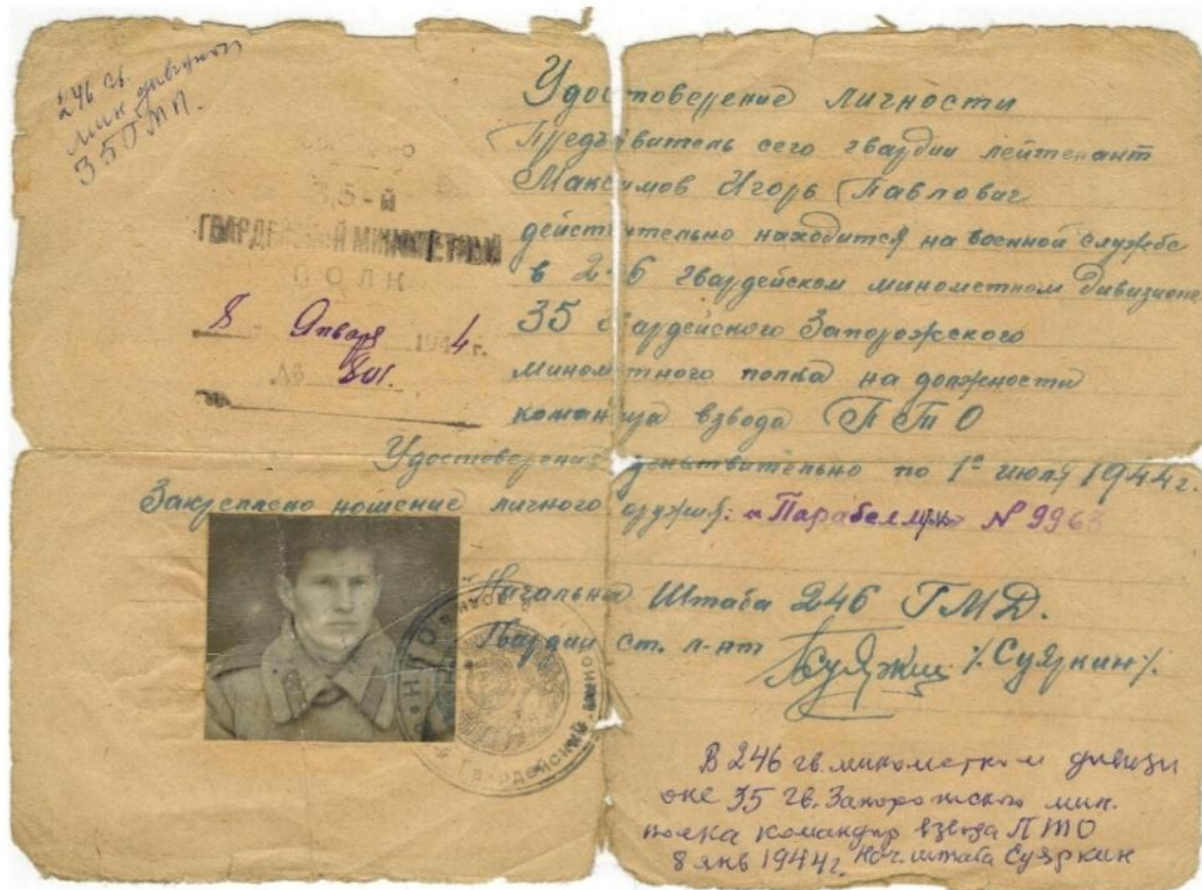 246 гв.
мин дивизион
35 ГМП.
35-й
ГВАРДЕЙСКИЙ МИНОМЕТНЫЙ
ПОЛК
8 Января 1944 г.
№ 801.
Удостоверение личности
Предъявитель сего гвардии лейтенант
Максимов Игорь Павлович
действительно находится на военной службе
в 246 гвардейском минометном дивизионе
35 гвардейского Запорожского
минометного полка на должности
командира взвода ПТО
Удостоверение действительно по 1е июля 1944 г.
Закреплено ношение личного оружия: «Парабеллум» №
Начальник Штаба 246 ГМД.
Гвардии ст. л-нт /Суяркин/.
НКО
Гвардейский
В 246 гв. минометном дивизи
оне 35 гв. Запорожского мин.
полка командир взвода ПТО
8 янв 1944 г. Нач. штаба Суяркин